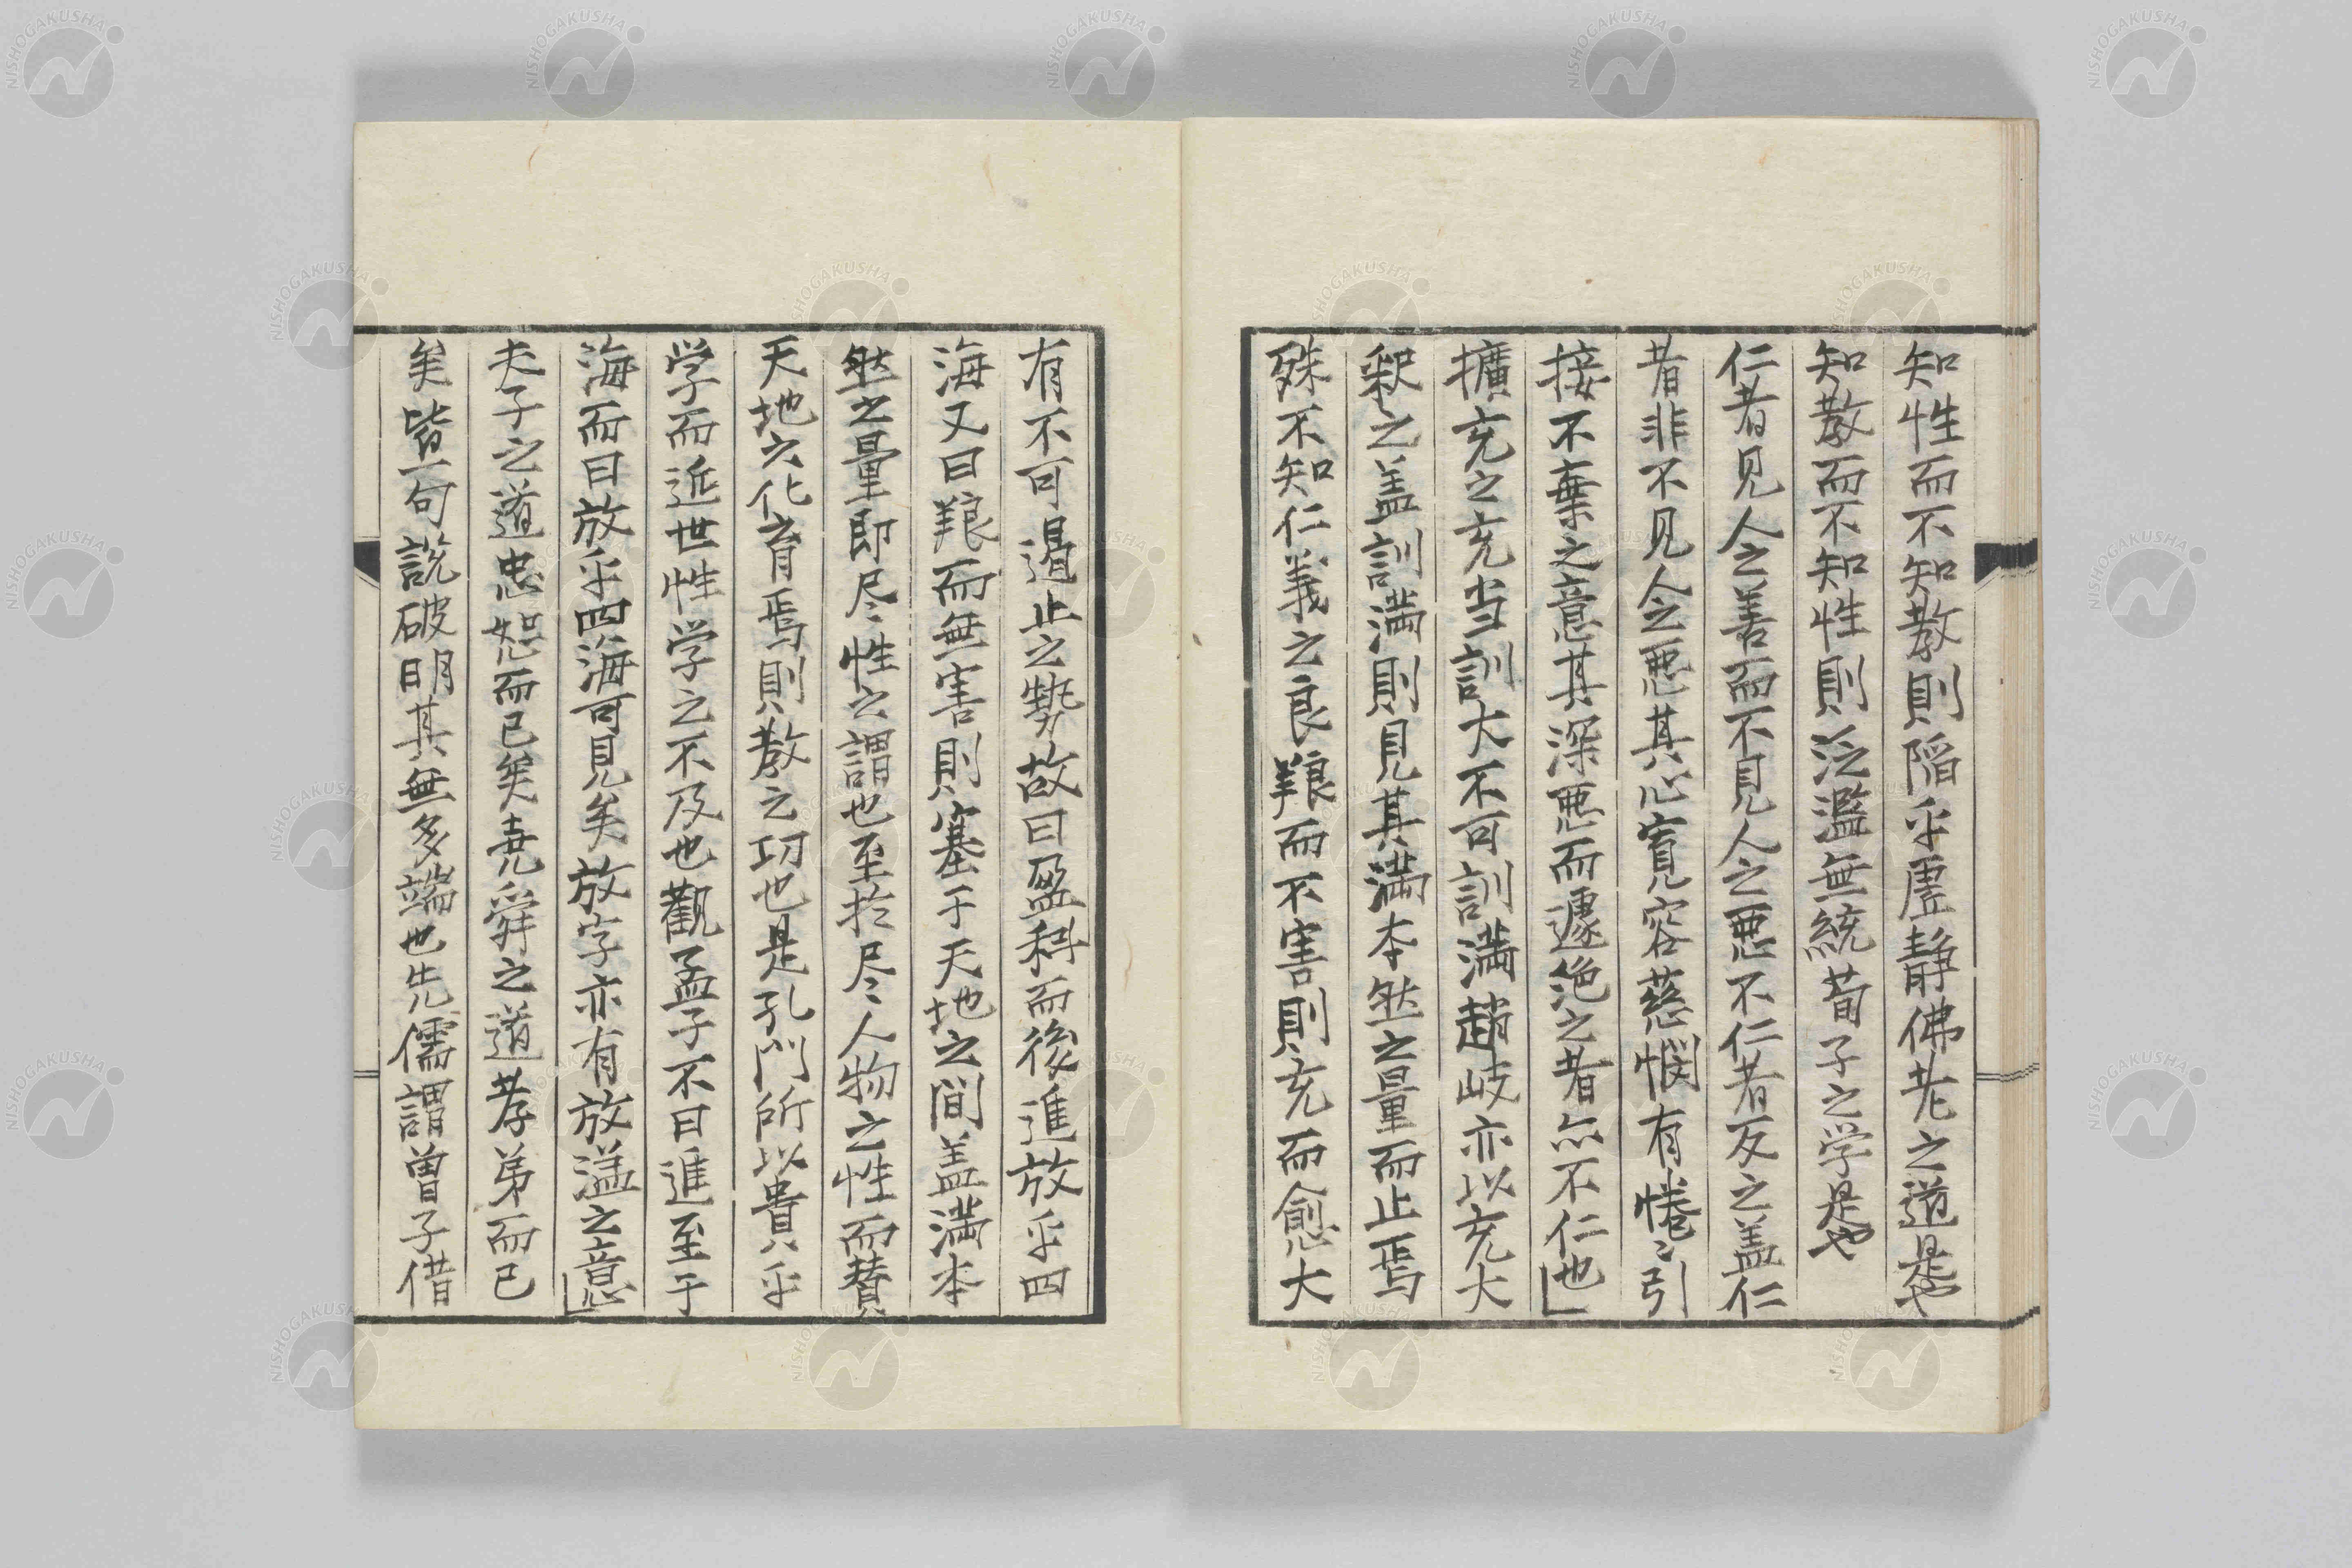 知性而不知教則陥乎虚静佛老之道是也
知教而不知性則泛濫無統荀子之学是也
仁者見人之善而不見人之悪不仁者反之盖仁
者非不见人之悪其心寛容慈憫有惓〻引
接不棄之意其深悪而遽絶之者亦不仁也」
擴充之充当訓大不可訓満趙岐亦以充大
釈之盖訓満則見其満本然之量而止焉
殊不知仁義之良養而不害則充而愈大
有不可遏止之勢故曰盈科而後進放乎四
海又曰養而無害則塞于天地之間盖満本
然之量即尽性之謂也至於尽人物之性而賛
天地之化育焉則教之功也是孔門所以貴乎
学而近世性学之不及也觀孟子不曰進至于
海而曰放乎四海可見矣放字亦有放溢之意」
夫子之道忠恕而已矣尭舜之道孝弟而已
矣皆一句説破明其無多端也先儒謂曽子借
NISHOGAKUSHA